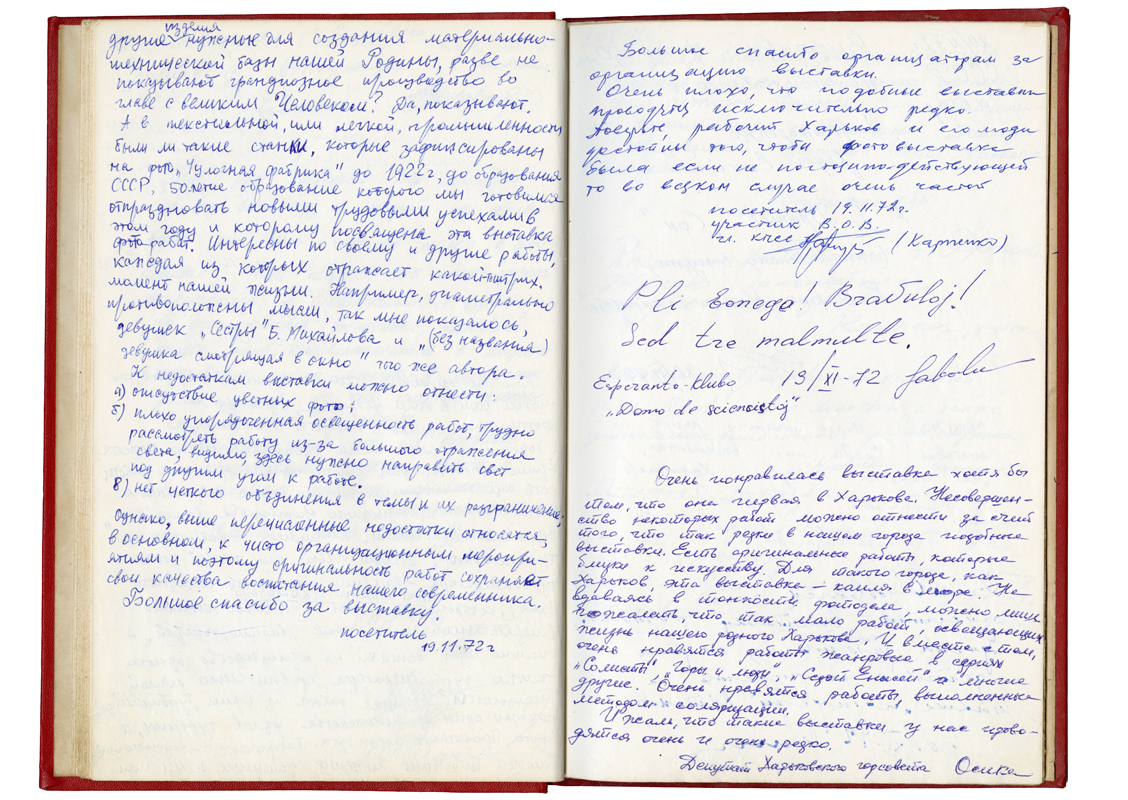 изделия
другие нужные для создания материально-
технической базы нашей Родины, разве не
показывают грандиозное производство во
главе с великим Человеком? Да, показывают.
А в текстильной, или легкой, промышленности
были ли такие станки, которые зафиксированы
на фото „Чулочная фабрика" до 1922г, до образования
СССР, 50летие образование которого мы готовимся
отпраздновать новыми трудовыми успехами в
этом году и которому посвящена эта выставка
фоторабот. Интересны по своему и другие работы,
каждая из которых отражает какой-то штрих.
момент нашей жизни. Например, диаметрально
противоположны мысли, так мне показалось,
девушек „Сестры" Б. Михайлова и „(без названия)
девушка смотрящая в окно" того же автора.
К недостаткам выставки можно отнести:
а) отсутствие цветных фото;
б) плохо упорядоченная освещенность работ, трудно
рассмотреть работу из-за большого отражения
света, видимо, здесь нужно направить свет
под другим углом к работе.
в) нет четкого объдинения в темы и их разграничение;
Однако, выше перечисленные недостатки относятся,
в основном, к чисто организационным меропри-
ятиям и поэтому оригинальность работ сохраняет
свои качества воспитания нашего современника.
Большое спасибо за выставку.
посетитель
19.11.72г
Большое спасибо организаторам за
организацию выставки.
Очень плохо, что подобные выставки
проводятся исключительно редко.
рабочий Харьков и его люди
достойны того, чтобы фотовыставка
была если не постоянно-действующей
то во всяком случае очень частой
посетитель 19.11.72г.
участник В.О.В.
(Карпенко)
Pli bonega! Brabuloj!
Sed tre malmulte.
Esperanto-klubo 19/XI-72
„Domo de sciencistoj"
Очень понравилась выставка хотя бы
тем, что она первая в Харькове. Несовершен-
ство некоторых работ можно отнести за счет
того, что так редки в нашем городе подобные
выставки. Есть оригинальные работы, которые
близки к искусству. Для такого города, как
Харьков, эта выставка – капля в море. Не
вдаваясь в тонкости фотодела, можно лишь
пожалеть, что так мало работ, освещающих
жизнь нашего родного Харькова. И вместе с тем,
очень нравятся работы в сериях
„Солисты" „Горы и люди", „Седой Енисей" и многие
другие. Очень нравятся работы, выполненные
методом соляризации.
И жаль, что такие выставки у нас прово-
дятся очень и очень редко.
Депутат Харьковского горсовета Осика